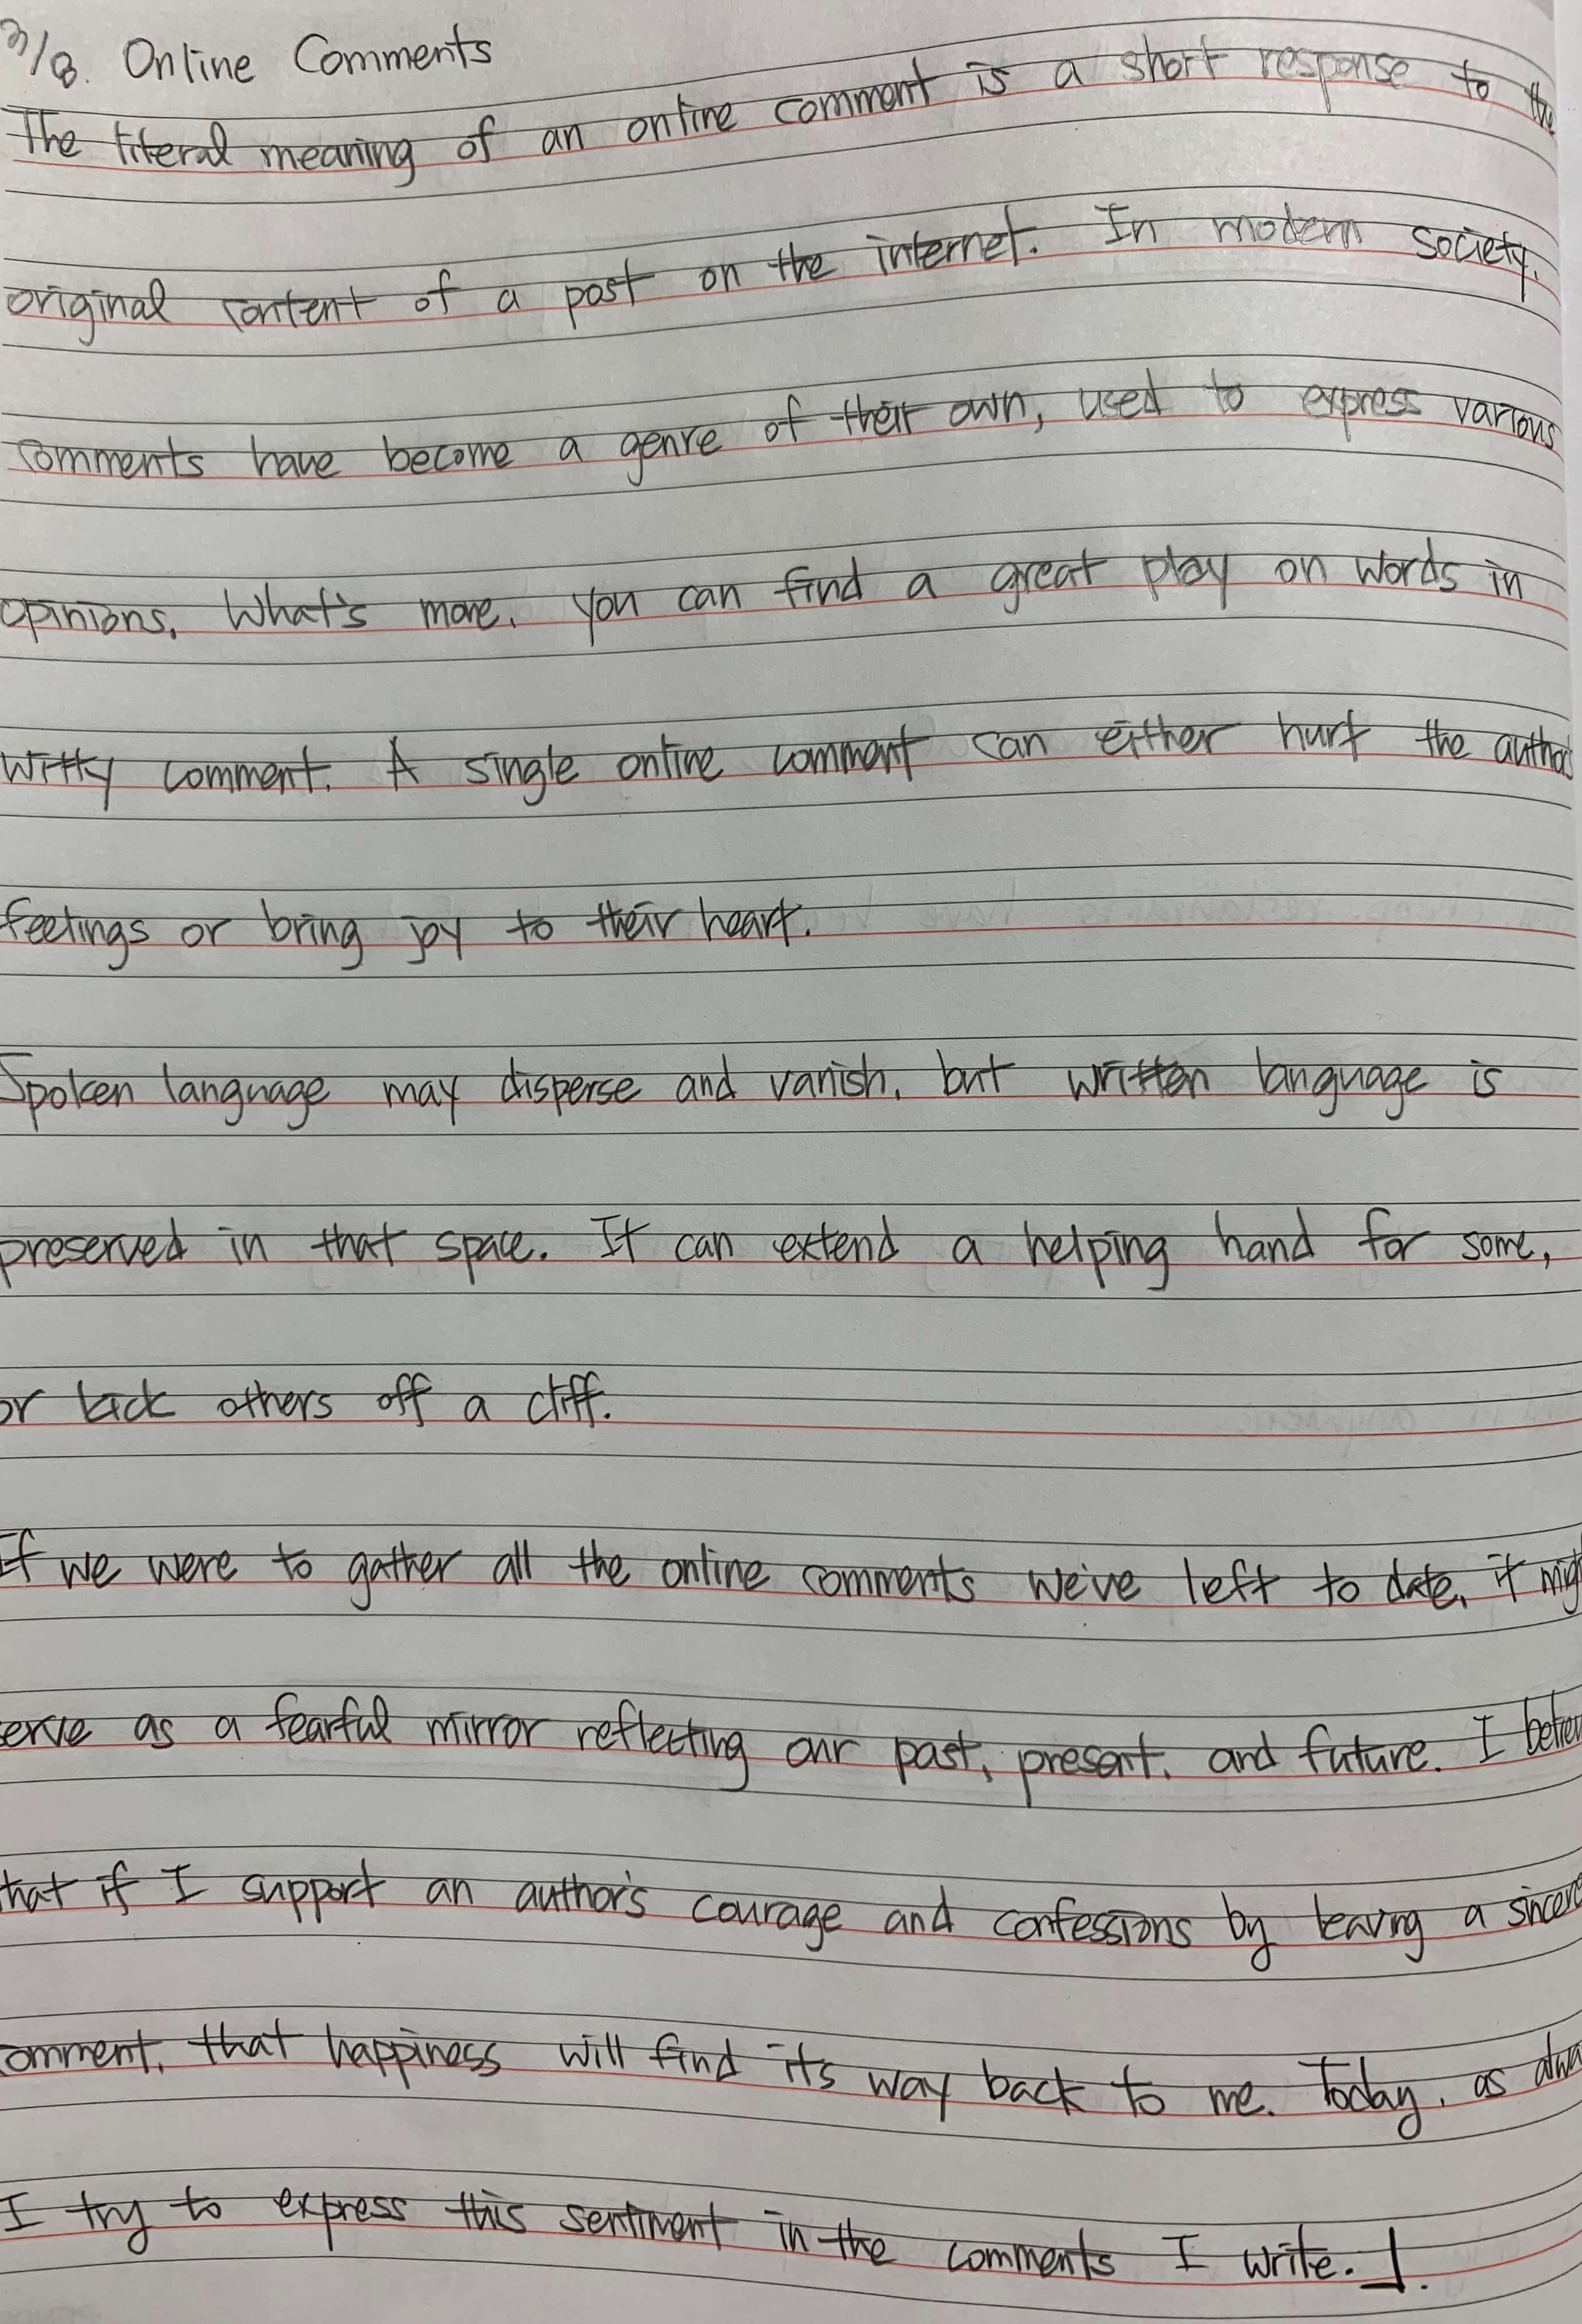 3/8. Online Comments
The literal meaning of an online comment is a short response to the
original content of a post on the internet. In modern society,
comments have become a genre of their own, used to express various
opinions. What's more, you can find a great play on words in
witty comment. A single online comment can either hurt the author's
feelings or bring joy to their heart.
Spoken language may disperse and vanish, but written language is
preserved in that space. It can extend a helping hand for some,
or kick others off a cliff.
If we were to gather all the online comments we've left to date, it
serve as a fearful mirror reflecting our past, present, and future. I
that if I support an author's courage and confessions by leaving a sincere
comment, that happiness will find its way back to me. Today, as
I try to express this sentiment in the comments I write.